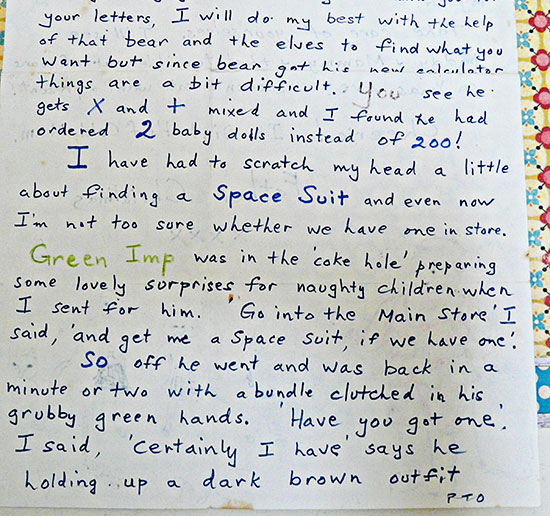 your letters, I will do my best with the help
of that bear and the elves to find what you
want but since bear got his new calculator
things are a bit difficult. You see he
gets X and + mixed and I found he had
ordered 2 baby dolls instead of 200!
I have had to scratch my head a little
about finding a Space Suit and even now
I'm not too sure whether we have one in store.
Green Imp was in the 'coke hole' preparing
some lovely surprises for naughty children when
I sent for him. 'Go into the Main Store' I
said, 'and get me a Space Suit, if we have one'.
So off he went and was back in a
minute or two with a bundle clutched in his
grubby green hands. 'Have you got one'.
I said, 'certainly I have' says he
holding up a dark brown outfit
PTO